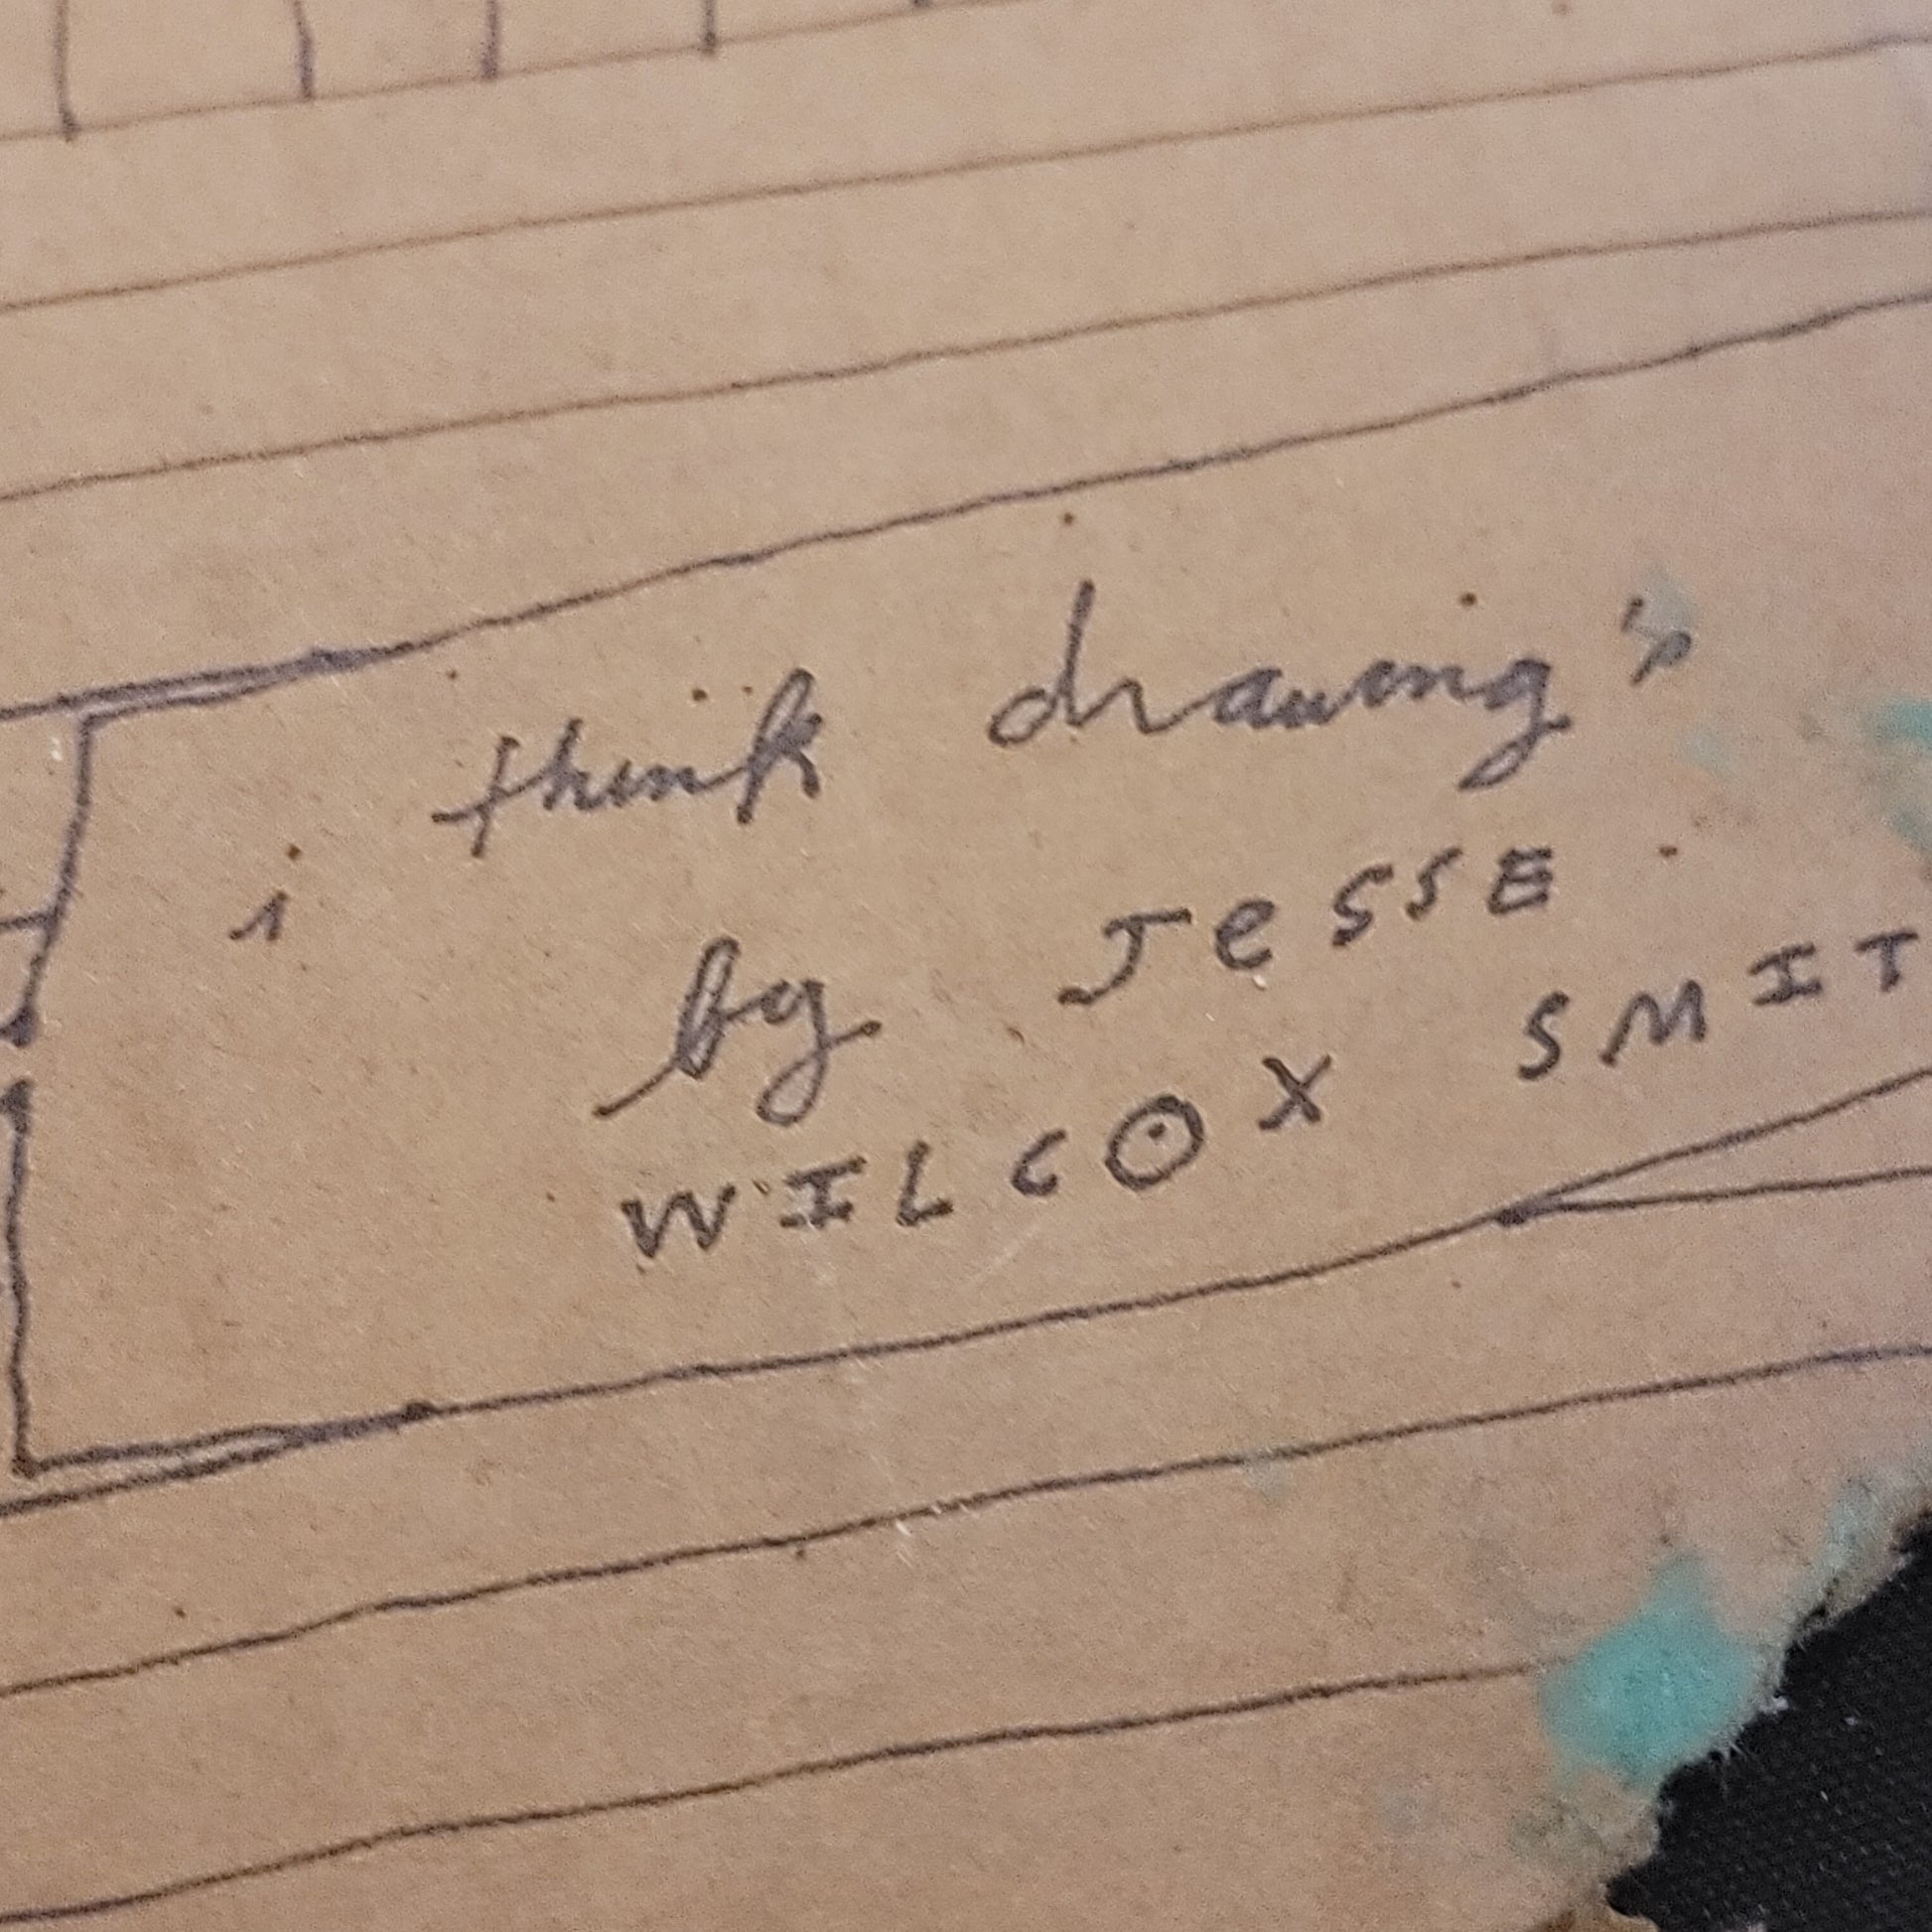 i think drawing's
by JeSSE
WILCOX SMIT